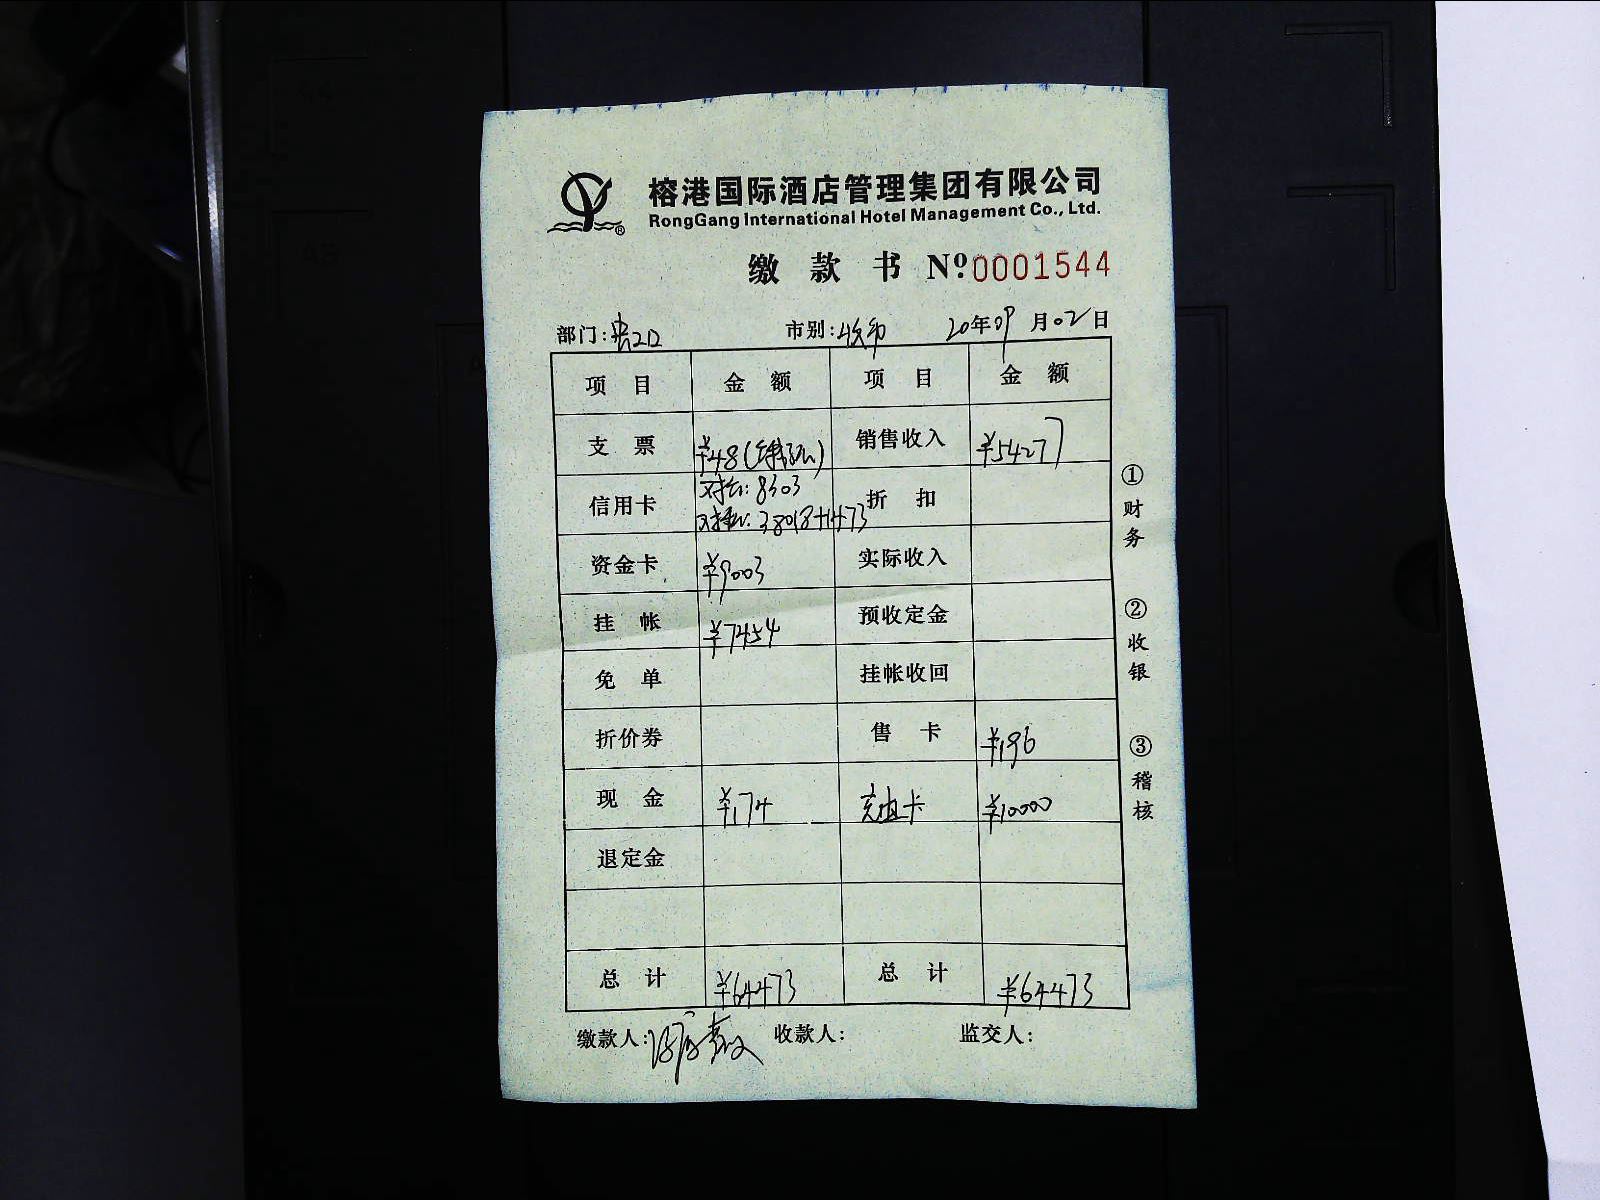 榕港国际酒店管理集团有限公司
RongGang International Hotel Management Co., Ltd.
®
缴款书 Nº 0001544
部门: 市别: 20年09月02日
项目 金额 项目 金额
支票 ¥48 销售收入 ¥54277
信用卡 8303 折扣
38018+1473
资金卡 ¥9003 实际收入
挂帐 ¥7454 预收定金
免单 挂帐收回
折价券 售卡 ¥196
现金 ¥174 充值卡 ¥10000
退定金
总计 ¥64473 总计 ¥64473
缴款人: 收款人: 监交人:
①财务
②收银
③稽核